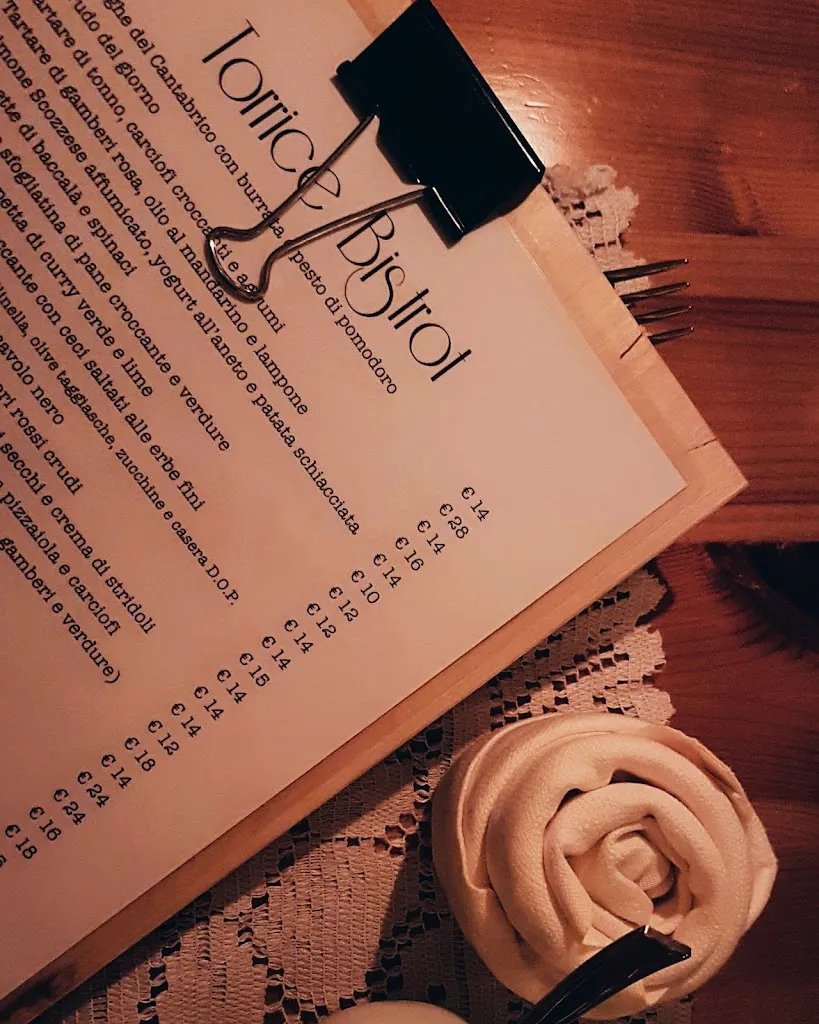 Torrice Bistrot
del Cantabrico con burrata, pesto di pomodoro
del giorno
di tonno, carciofi croccanti e agrumi
Tartare di gamberi rosa, olio al mandarino e lampone
Scozzese affumicato, yogurt all'aneto e patata schiacciata
di baccalà e spinaci
sfogliatina di pane croccante e verdure
di curry verde e lime
con ceci saltati alle erbe fini
olive taggiasche, zucchine e casera D.O.P.
nero
rossi crudi
secchi e crema di stridoli
pizzaiola e carciofi
gamberi e verdure)
€ 14
€ 28
€ 14
€ 16
€ 14
€ 10
€ 12
€ 12
€ 14
€ 14
€ 15
€ 14
€ 14
€ 14
€ 12
€ 18
€ 14
€ 24
€ 24
€ 16
€ 18